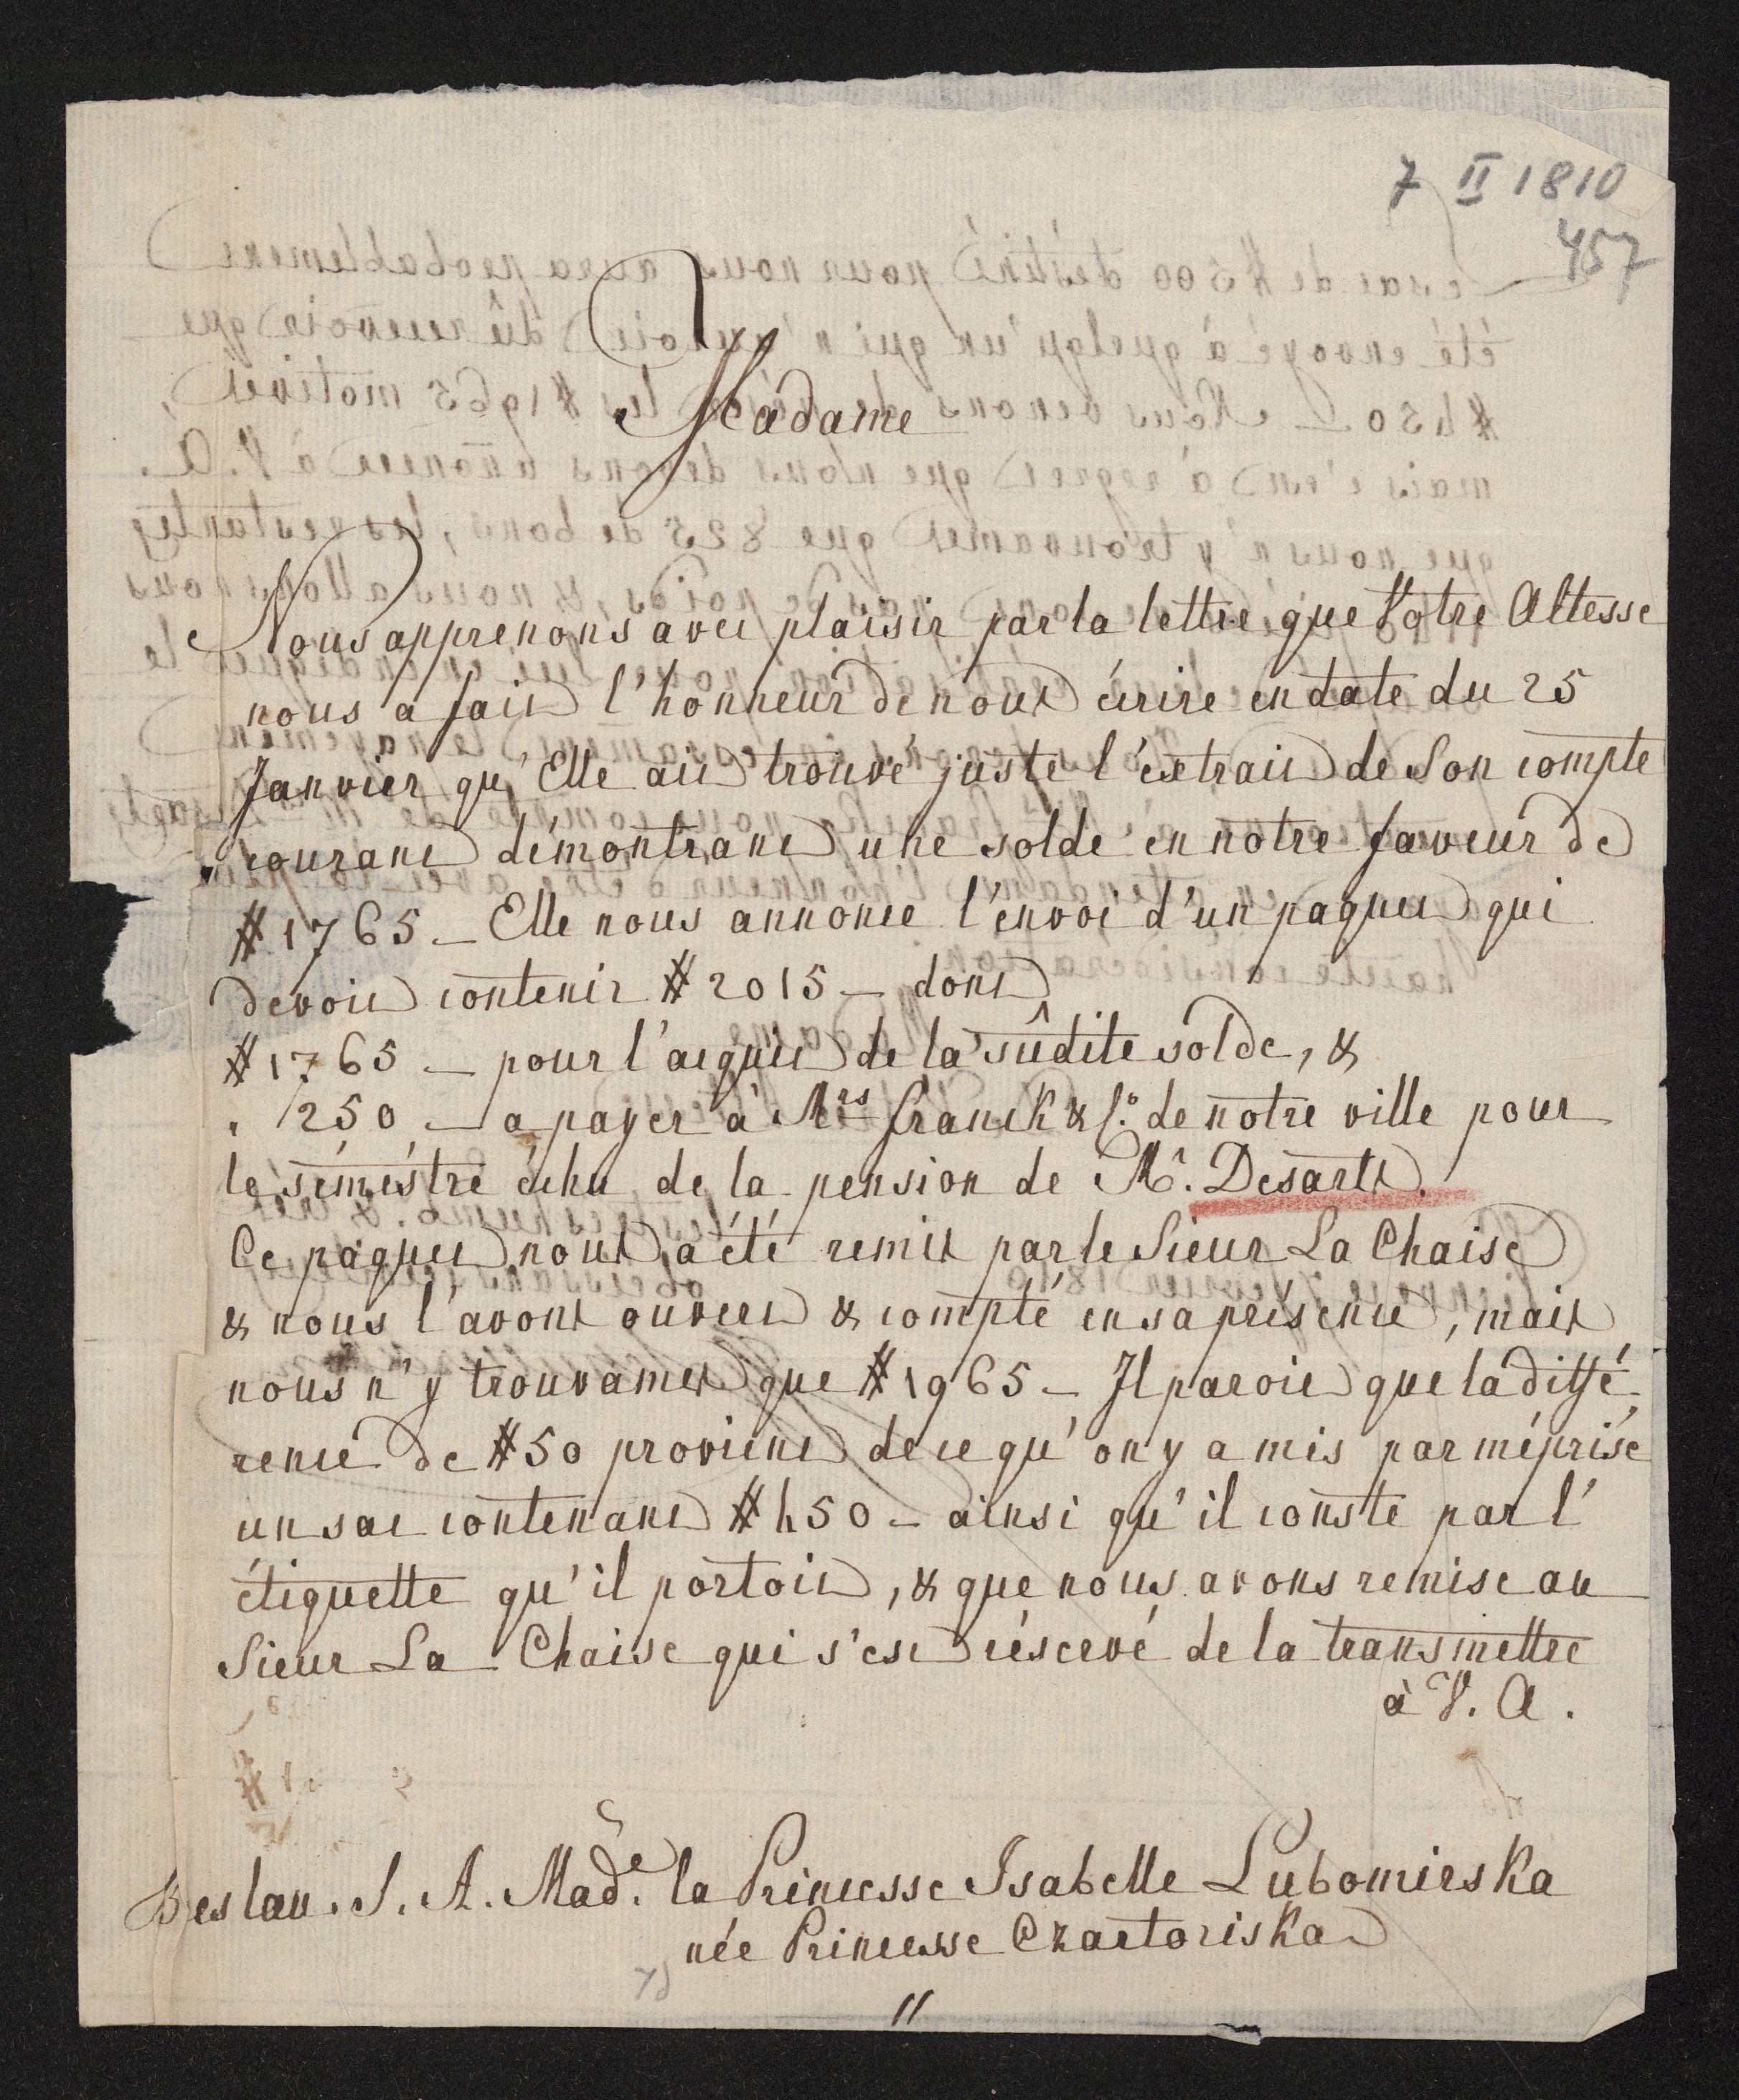 7 II 1810
457
Madame
Nous apprenons avec plaisir par la lettre que Votre Altesse
nous a fait l'honneur de nous écrire en date du 25
Janvier qu'Elle ait trouvé juste l'extrait de Son compte
courant démontrant une solde en notre faveur de
# 1765 – Elle nous annonce l'envoi d'un paquet qui
devoit contenir # 2015 – dont
# 1765 – pour l'acquit de la sûdite solde, &
" 250 – a payer à Mrs franck & Co. de notre ville pour
le séméstre échu de la pension de Mr. Desarts.
Ce paquet nous a été remis par le Sieur La Chaise
& nous l'avons ouvert & compté en sa présence, mais
nous n'y trouvames que # 1965 – Il paroit que la diffé-
rence de # 50 provient de ce qu'on y a mis par méprise
un sac contenant # 450 – ainsi qu'il conste par l'
étiquette qu'il portoit, & que nous avons remise au
Sieur La Chaise qui s'est réservé de la transmettre
à V. A.
S. A. Made. la Princesse Isabelle Lubomirska
née Princesse Czartoriska
11